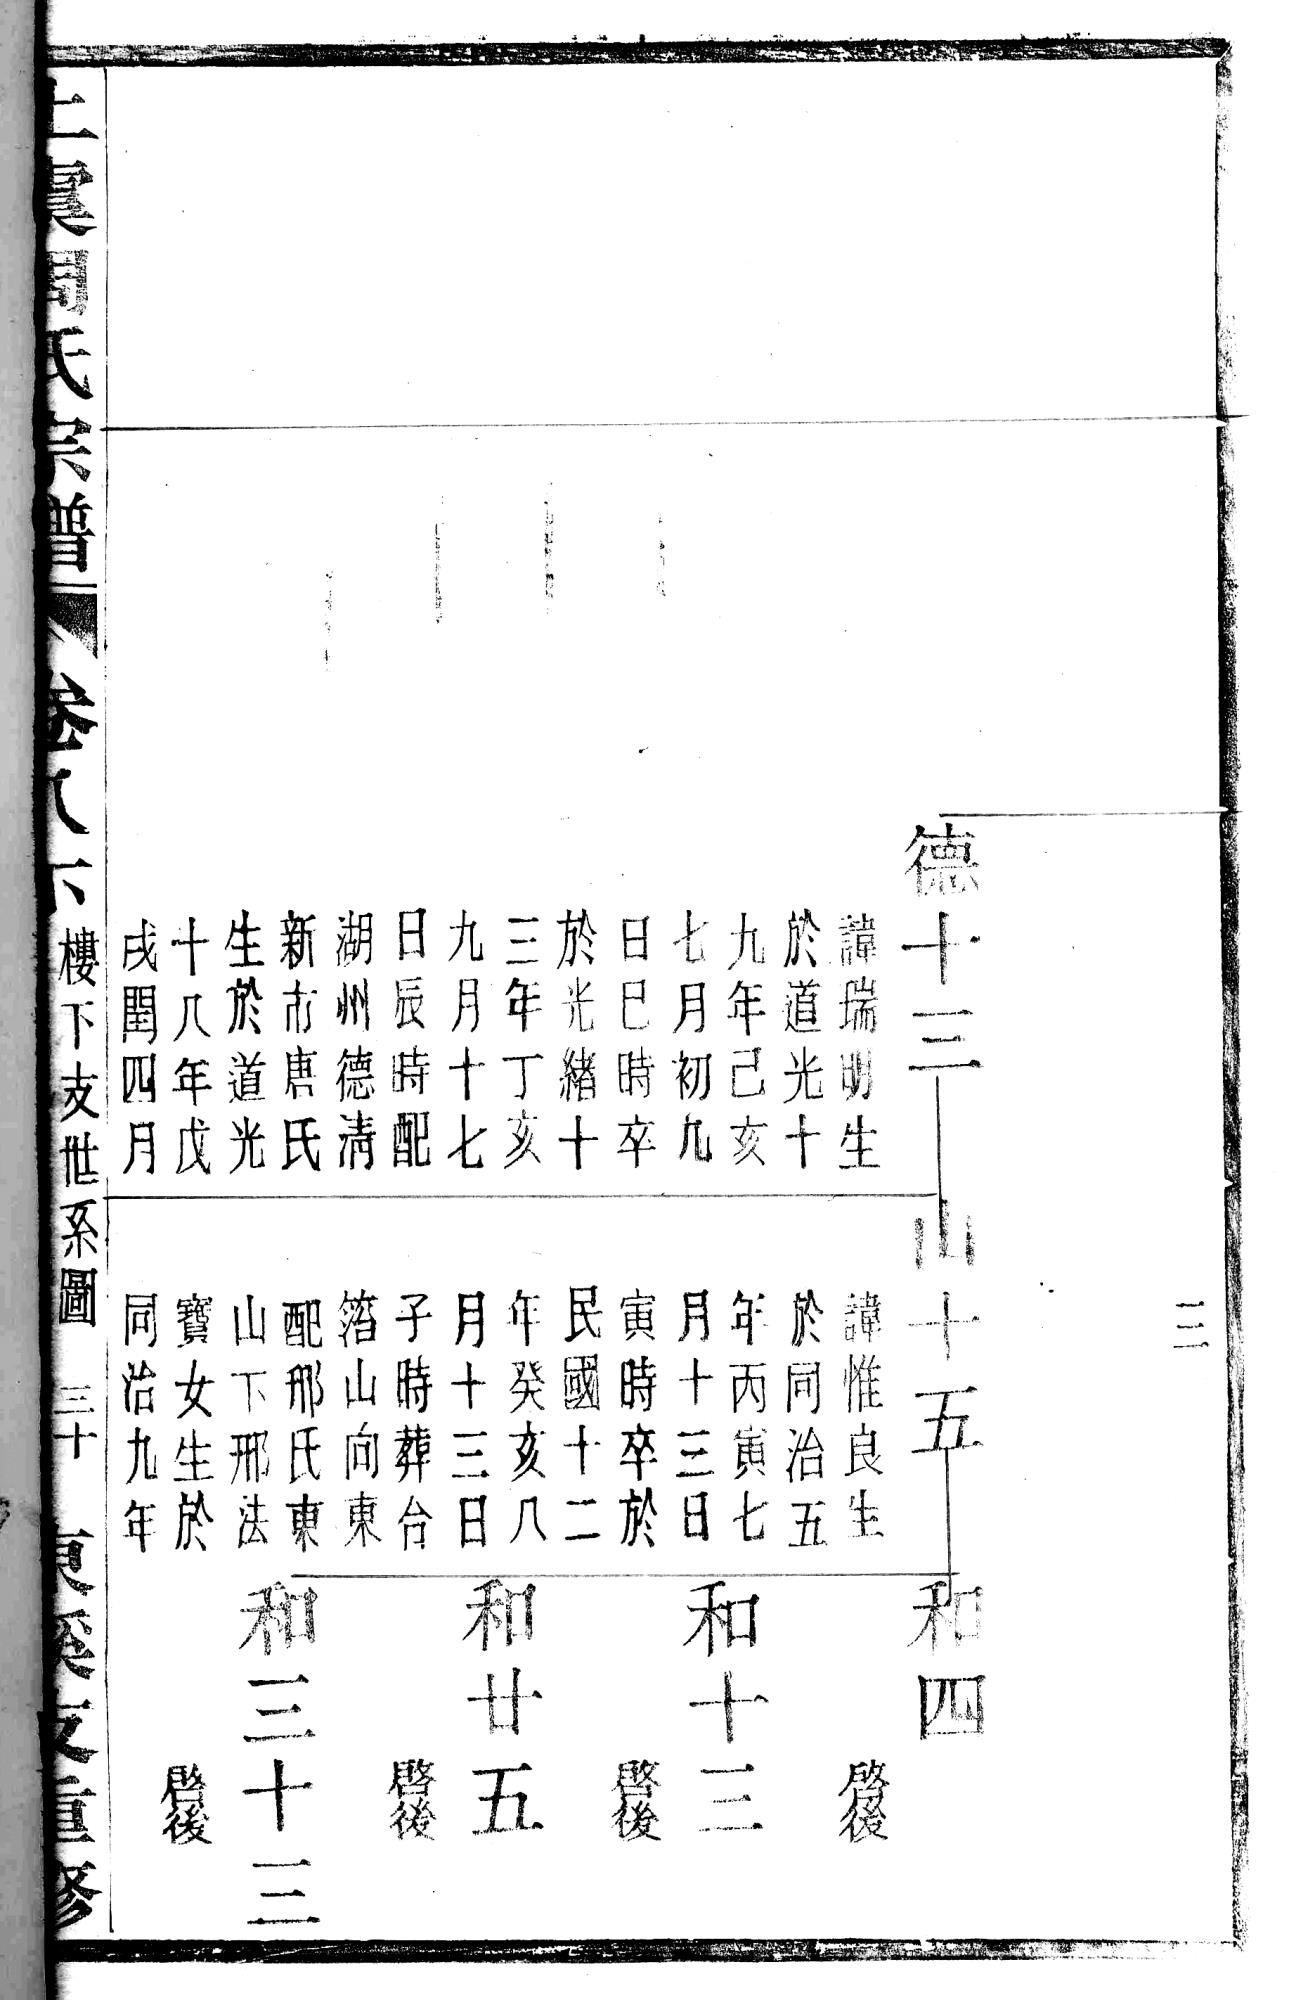 三
德十三
諱瑞明生
於道光十
九年己亥
七月初九
日巳時卒
於光緒十
三年丁亥
九月十七
日辰時配
湖州德清
新市唐氏
生於道光
十八年戊
戌閏四月
山十五
諱惟良生
於同治五
年丙寅七
月十三日
寅時卒於
民國十二
年癸亥八
月十三日
子時葬台
箬山向東
配邢氏東
山下邢法
寶女生於
同治九年
和四
啓後
和十三
啓後
和廿五
啓後
和三十三
啓後
上虞周氏宗譜
卷八下
樓下支世系圖
三十
東溪支重修